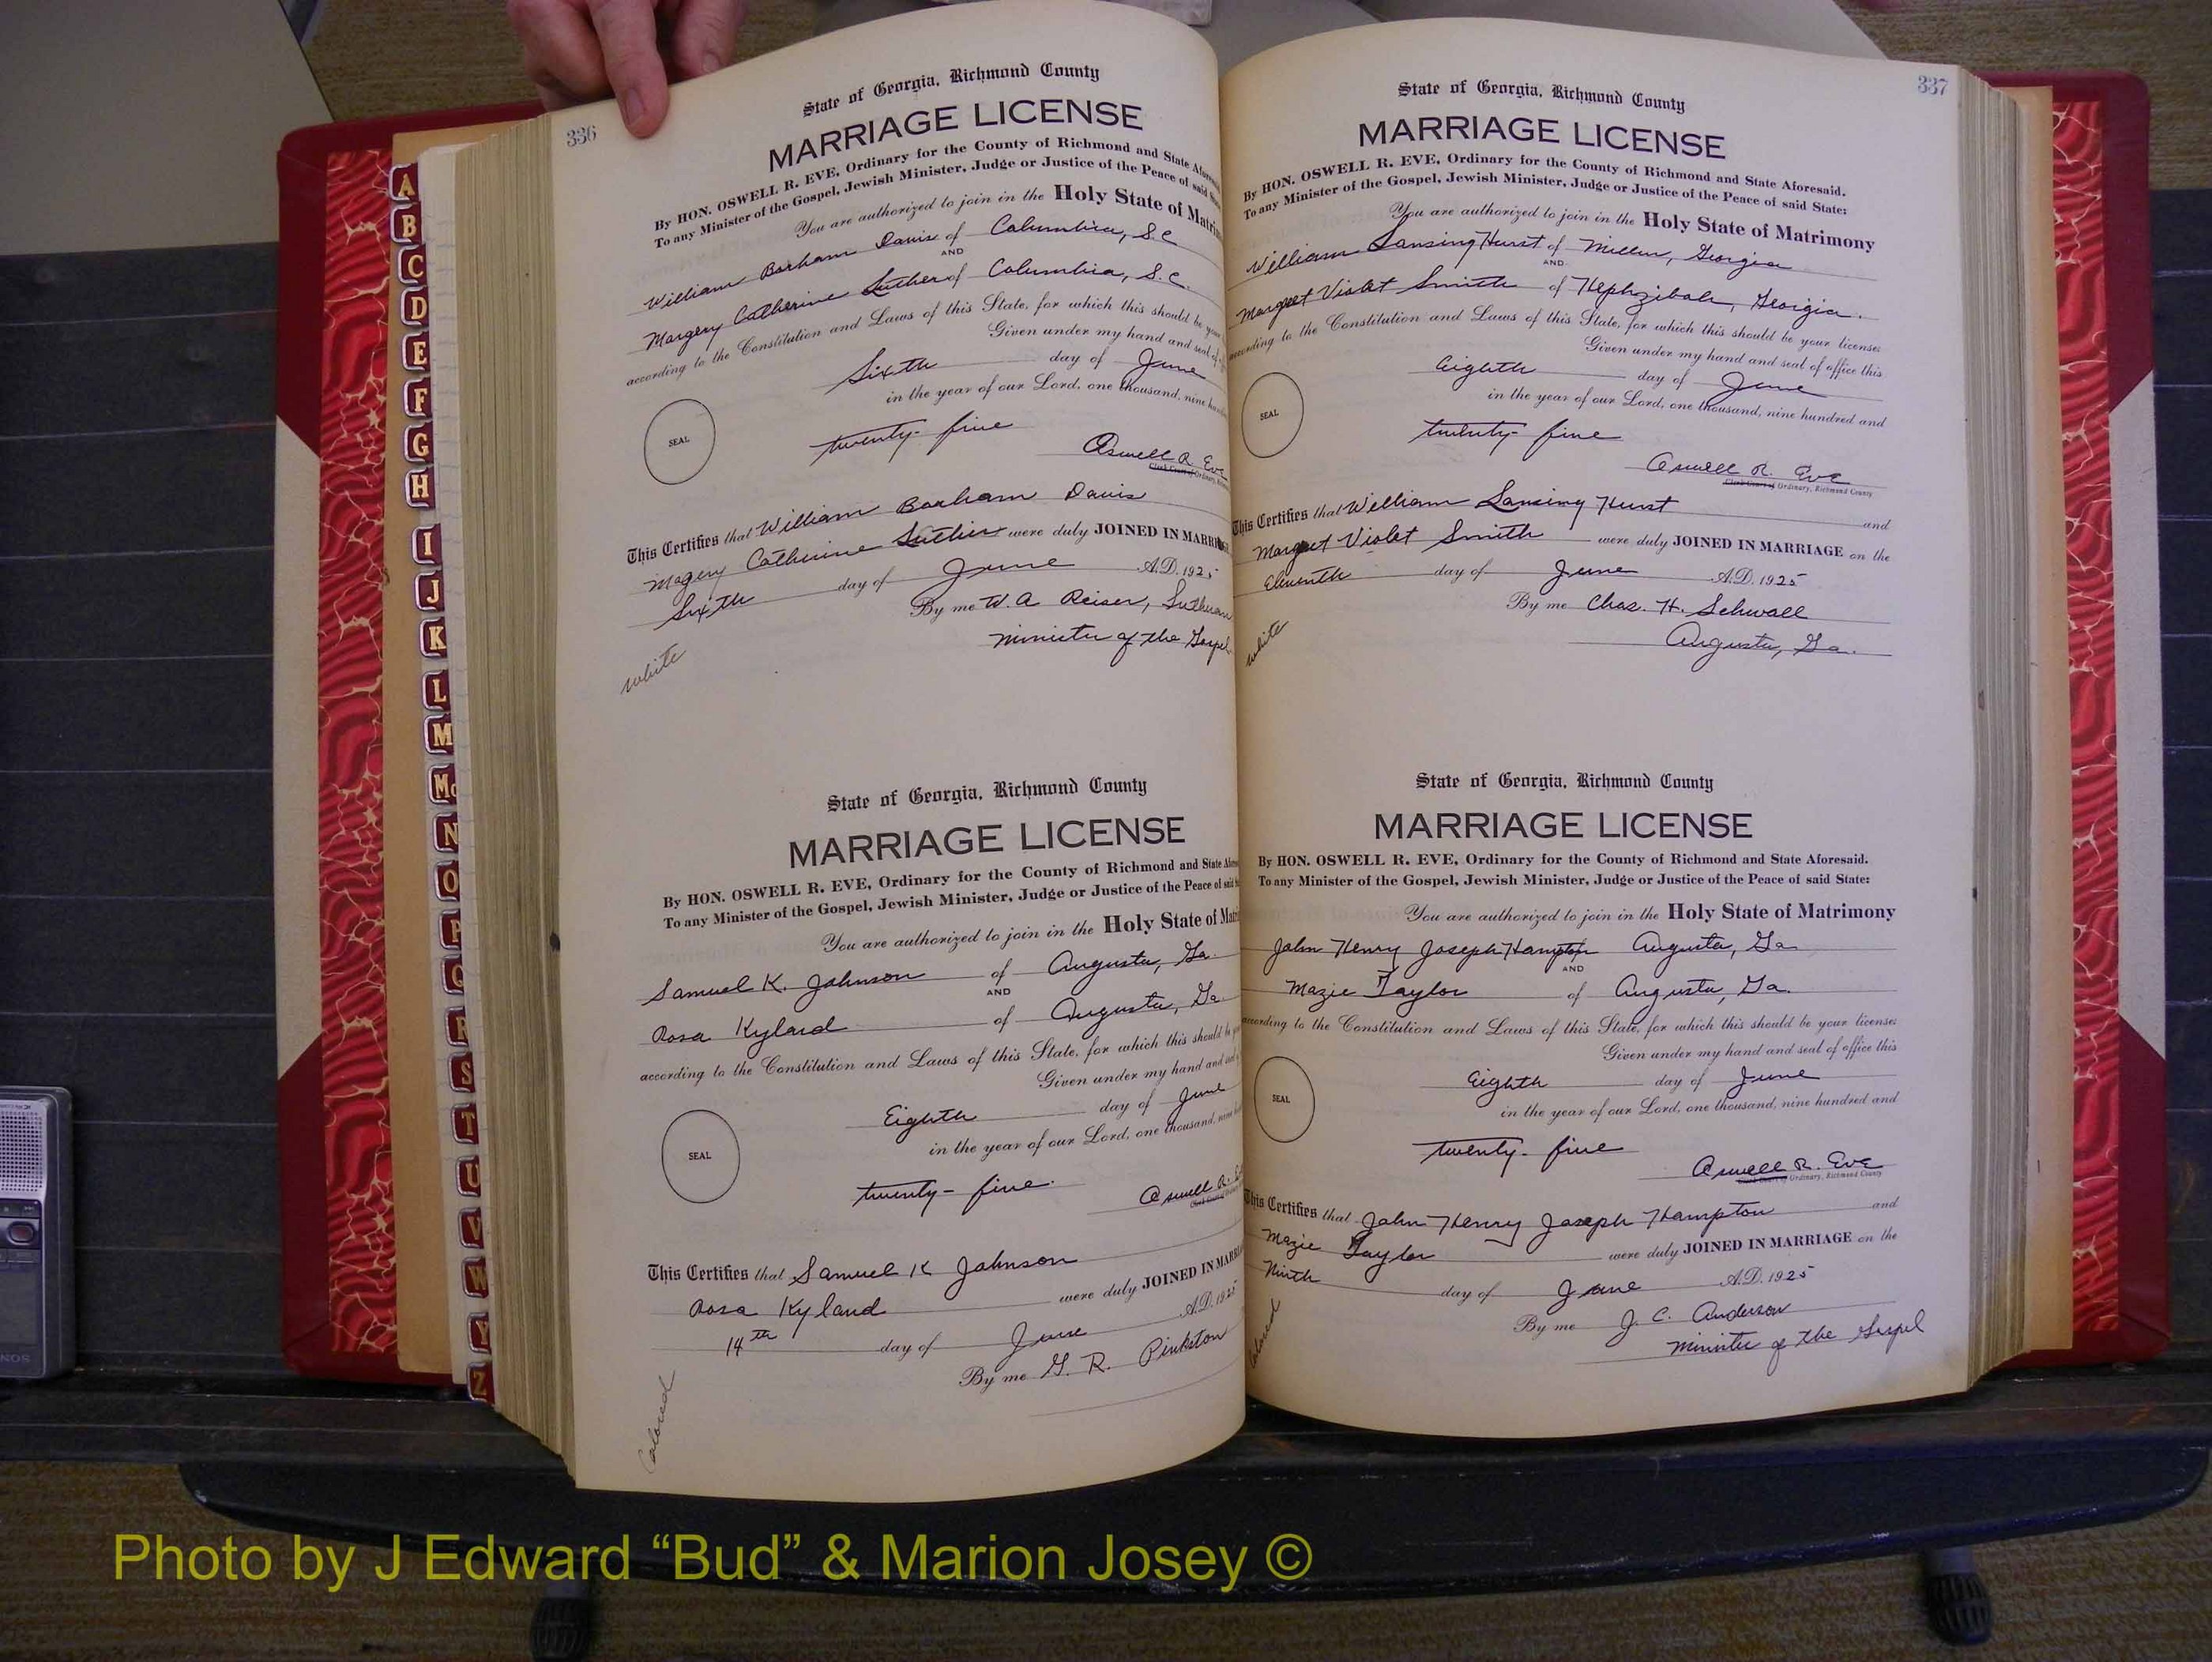 336
State of Georgia, Richmond County
MARRIAGE LICENSE
By HON. OSWELL R. EVE, Ordinary for the County of Richmond and State Aforesaid
To any Minister of the Gospel, Jewish Minister, Judge or Justice of the Peace of said
You are authorized to join in the Holy State of Matrim
William Barham Davis of Columbia, S.C
AND
Margery Catherine Luther of Columbia, S.C.
according to the Constitution and Laws of this State, for which this should be your
Given under my hand and seal of
Sixth day of June
in the year of our Lord, one thousand, nine hun
SEAL
twenty-five
Oswell R Eve
Clerk Court of Ordinary,
This Certifies that William Barham Davis
Magery Catherine Luther were duly JOINED IN MARRIAGE
Sixth day of June A.D. 1925
By me W. A Reiser, Lutheran
Minister of the Gospel
white
State of Georgia, Richmond County
MARRIAGE LICENSE
By HON. OSWELL R. EVE, Ordinary for the County of Richmond and State Afore
To any Minister of the Gospel, Jewish Minister, Judge or Justice of the Peace of said
You are authorized to join in the Holy State of Mat
Samuel K. Johnson of Augusta, Ga.
AND
Rosa Kyland of Augusta, Ga.
according to the Constitution and Laws of this State, for which this should be
Given under my hand and seal
Eighth day of June
in the year of our Lord, one thousand, nine
SEAL
twenty-five.
Oswell R.
This Certifies that Samuel K Johnson
Rosa Kyland were duly JOINED IN MARRI
14th day of June A.D. 1925
By me G. R. Pinkston
Colored
337
State of Georgia, Richmond County
MARRIAGE LICENSE
By HON. OSWELL R. EVE, Ordinary for the County of Richmond and State Aforesaid.
To any Minister of the Gospel, Jewish Minister, Judge or Justice of the Peace of said State:
You are authorized to join in the Holy State of Matrimony
William Lansing Hurst of Millen, Georgia
AND
Margret Violet Smith of Hephzibah, Georgia.
according to the Constitution and Laws of this State, for which this should be your license
Given under my hand and seal of office this
Eighth day of June
in the year of our Lord, one thousand, nine hundred and
SEAL
twenty-five
Oswell R. Eve
Clerk Court of Ordinary, Richmond County
This Certifies that William Lansing Hurst and
Margret Violet Smith were duly JOINED IN MARRIAGE on the
Eleventh day of June A.D. 1925
By me Chas. H. Schwall
Augusta, Ga.
white
State of Georgia, Richmond County
MARRIAGE LICENSE
By HON. OSWELL R. EVE, Ordinary for the County of Richmond and State Aforesaid.
To any Minister of the Gospel, Jewish Minister, Judge or Justice of the Peace of said State:
You are authorized to join in the Holy State of Matrimony
John Henry Joseph Hampton Augusta, Ga
AND
Mazie Taylor of Augusta, Ga.
according to the Constitution and Laws of this State, for which this should be your license
Given under my hand and seal of office this
Eighth day of June
in the year of our Lord, one thousand, nine hundred and
SEAL
twenty-five
Oswell R. Eve
Clerk Court of Ordinary, Richmond County
This Certifies that John Henry Joseph Hampton and
Mazie Taylor were duly JOINED IN MARRIAGE on the
Ninth day of June A.D. 1925
By me J. C. Anderson
Minister of the Gospel
Colored
A
B
C
D
E
F
G
H
I
J
K
L
M
Mc
N
O
P
Q
R
S
T
U
V
W
Y
Z
Photo by J Edward “Bud” & Marion Josey ©